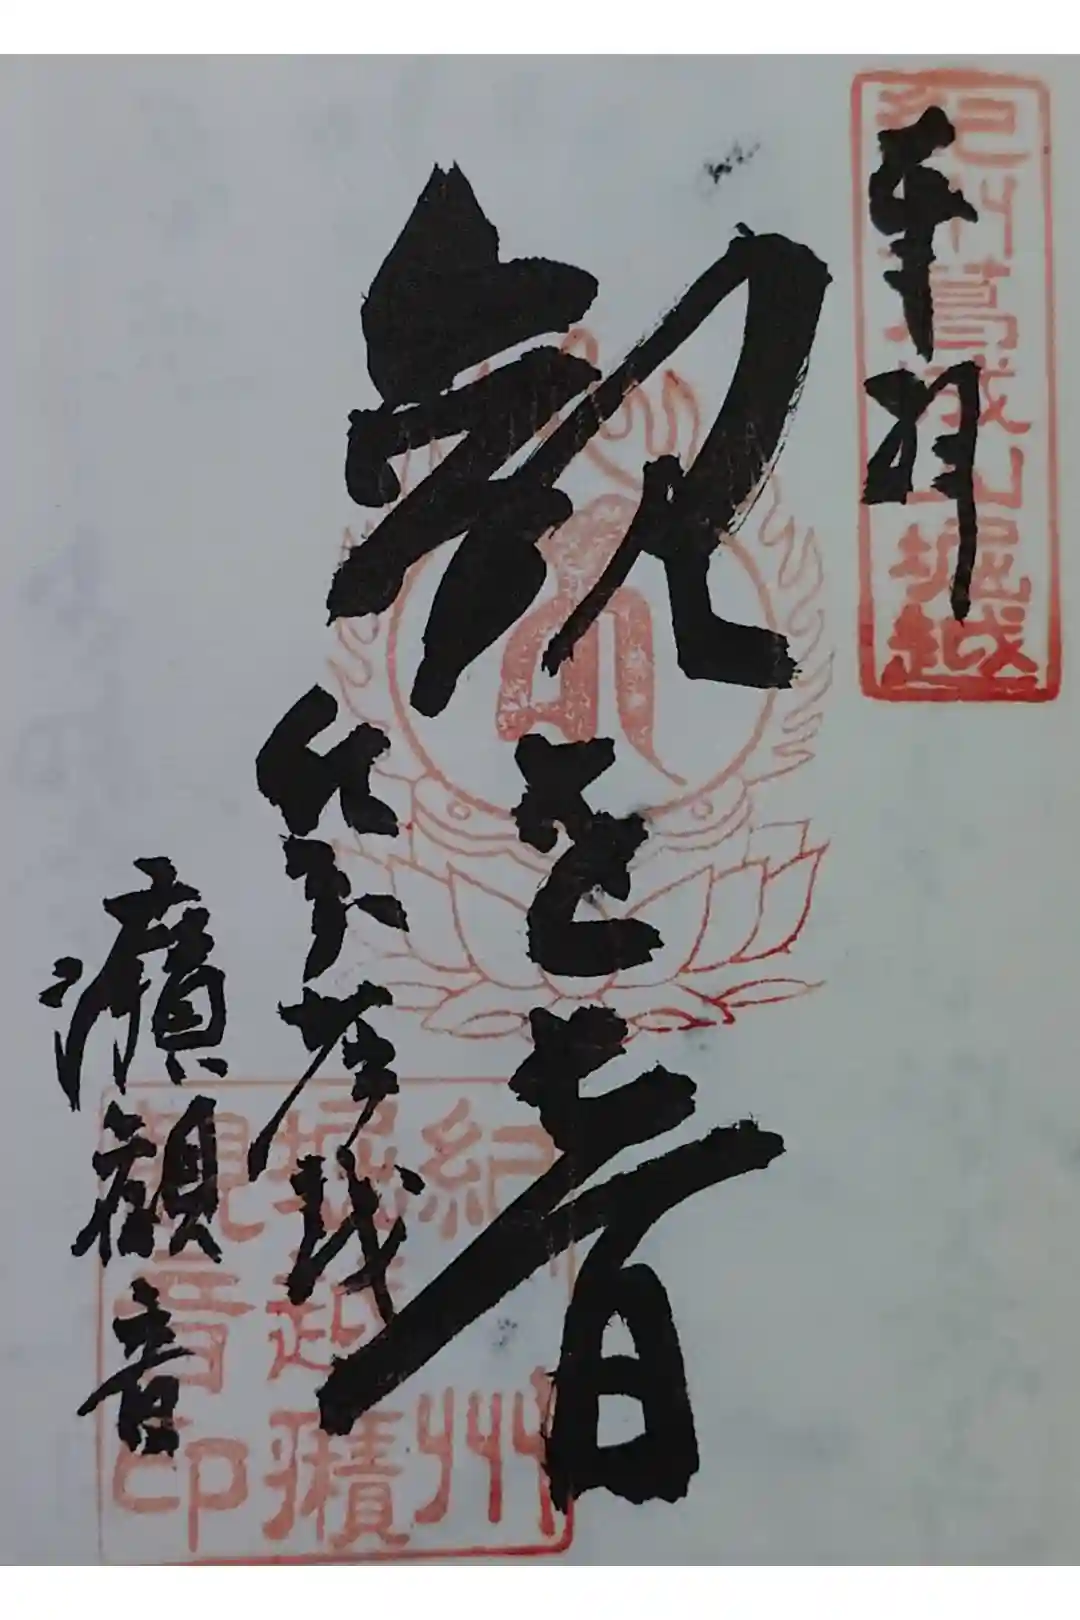 奉拝
紀州葛城山堀越
観世音
堀越
癪観音
紀州
堀越癪
観音印